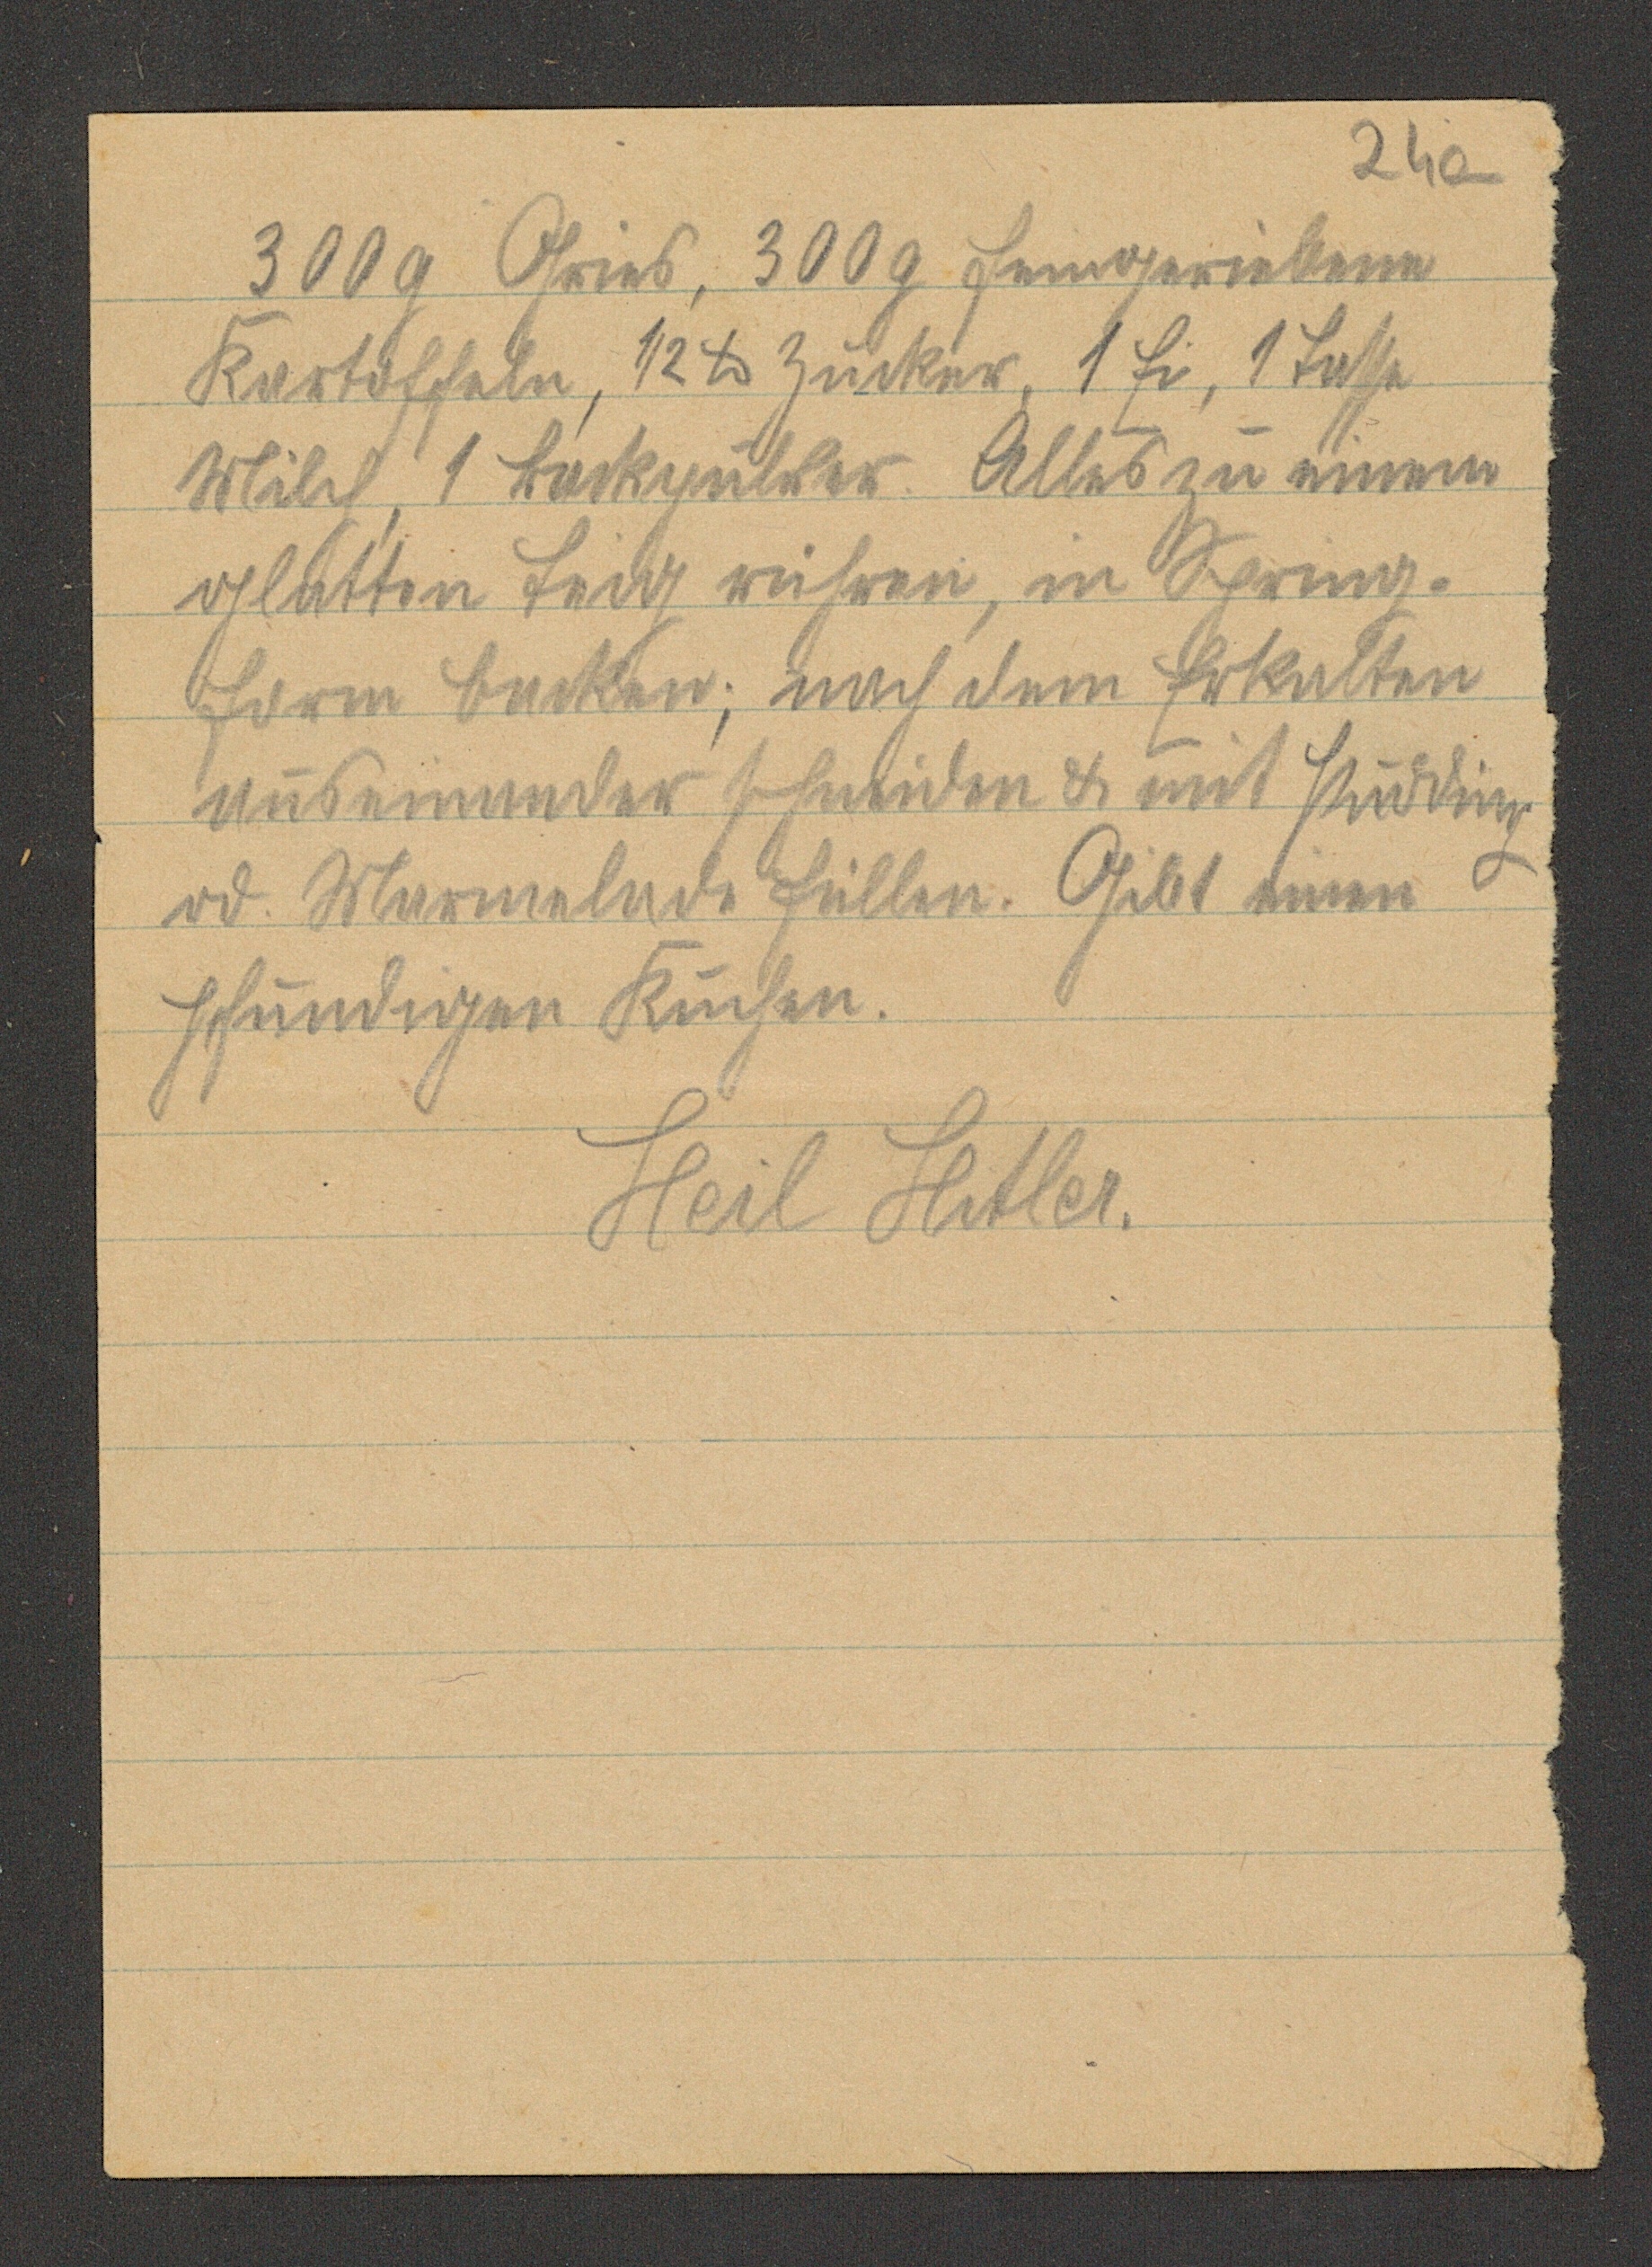 24a
300g Gries, 300g feingeriebene
Kartoffeln, 1/2 ℔ Zucker, 1 Ei, 1 Tasse
Milch, 1 Backpulver. Alles zu einem
glatten Teig rühren, in Spring-
form backen; nach dem Erkalten
auseinander schneiden & mit Pudding
od. Marmelade füllen. Gibt einen
pfundigen Kuchen.
Heil Hitler.